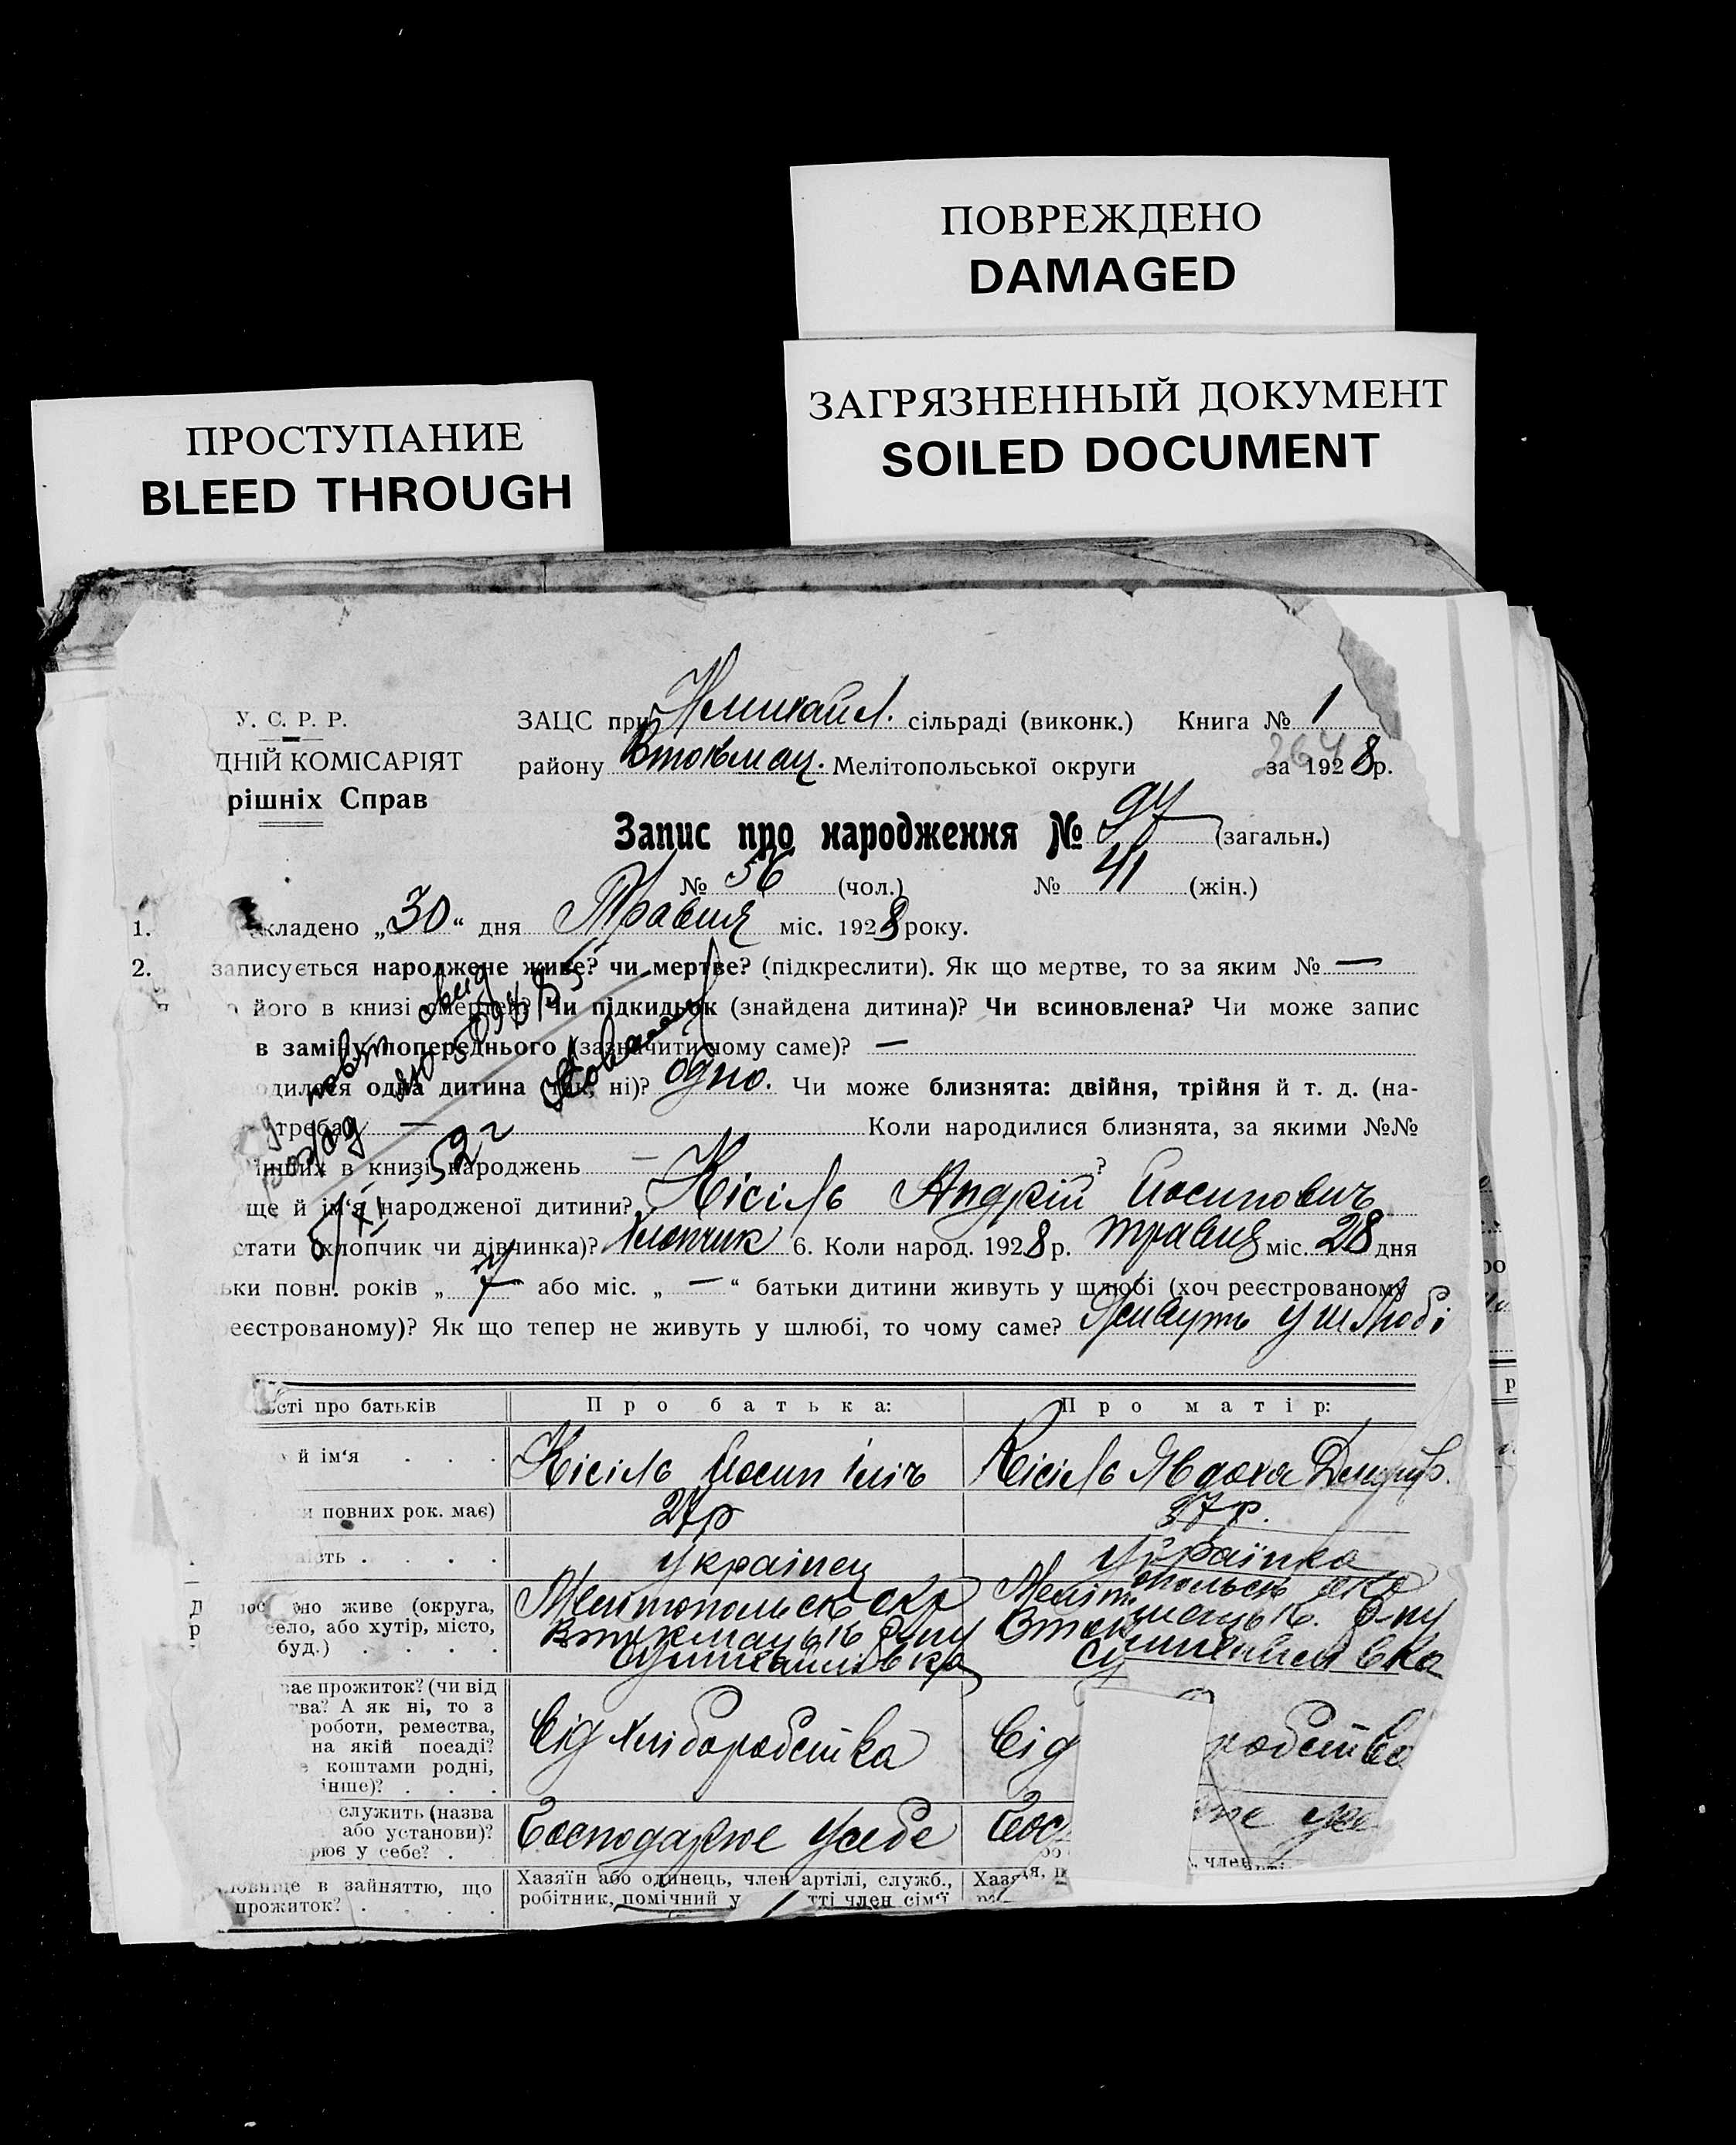 ПОВРЕЖДЕНО
DAMAGED
ЗАГРЯЗНЕННЫЙ ДОКУМЕНТ
SOILED DOCUMENT
ПРОСТУПАНИЕ
BLEED THROUGH
У. С. Р. Р.
ДНІЙ КОМІСАРІЯТ
рішніх Справ
ЗАЦС при сільраді (виконк.) Книга № 1
району Втокмац. Мелітопольської округи за 1928 р.
Запис про народження № 97 (загальн.)
№ 56 (чол.) № 41 (жін.)
1. кладено „30“ дня Травня міс. 1928 року.
2. записується народжене живе? чи мертве? (підкреслити). Як що мертве, то за яким № —
його в книзі смертей? Чи підкидьок (знайдена дитина)? Чи всиновлена? Чи може запис
в заміну попереднього (зазначити чому саме)? —
одилася одна дитина (так, ні)? одно. Чи може близнята: двійня, трійня й т. д. (на-
треба) — Коли народилися близнята, за якими №№
інших в книзі народжень — ?
ще й ім‘я народженої дитини? Кісіль Андрій Йосипович
стати (хлопчик чи дівчинка)? Хлопчик 6. Коли народ. 1928 р. травня міс. 28 дня
ьки повн. років „ 7 або міс. „ — “ батьки дитини живуть у шлюбі (хоч реєстрованому
еєстрованому)? Як що тепер не живуть у шлюбі, то чому саме? Живуть у шлюбі
сті про батьків Про батька: Про матір:
й ім‘я . . . Кісіль Йосип Іліч Кісіль Явдоха Дмитр.
и повних рок. має) 27р 27р.
ість . . . . українец українка
но живе (округа, Мелітопольськ окр Мелітопольськ окр
село, або хутір, місто, Втокмацьк р-ну Втокмацьк. р-ну
буд.) . . . .
ває прожиток? (чи від
тва? А як ні, то з
роботи, ремества, Від хліборобства Від робства
на якій посаді?
коштами родні,
інше)? . . .
служить (назва
або установи)? Господарює у себе Гос
рює у себе? .
новище в зайняттю, що Хазяїн або одинець, член артілі, служб., Хазя
прожиток? . . . . робітник, помічний у тті член сім‘ї